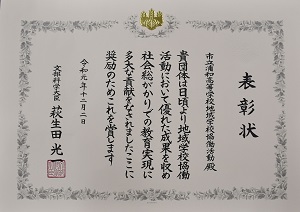 表彰状
市立浦和高等学校地域学校協働活動殿
貴団体は日頃より地域学校協働
活動において優れた成果を収め
社会総がかりでの教育実現に
多大な貢献をなされましたここに
奨励のためこれを賞します
令和元年十二月二日
文部科学大臣
萩生田光一